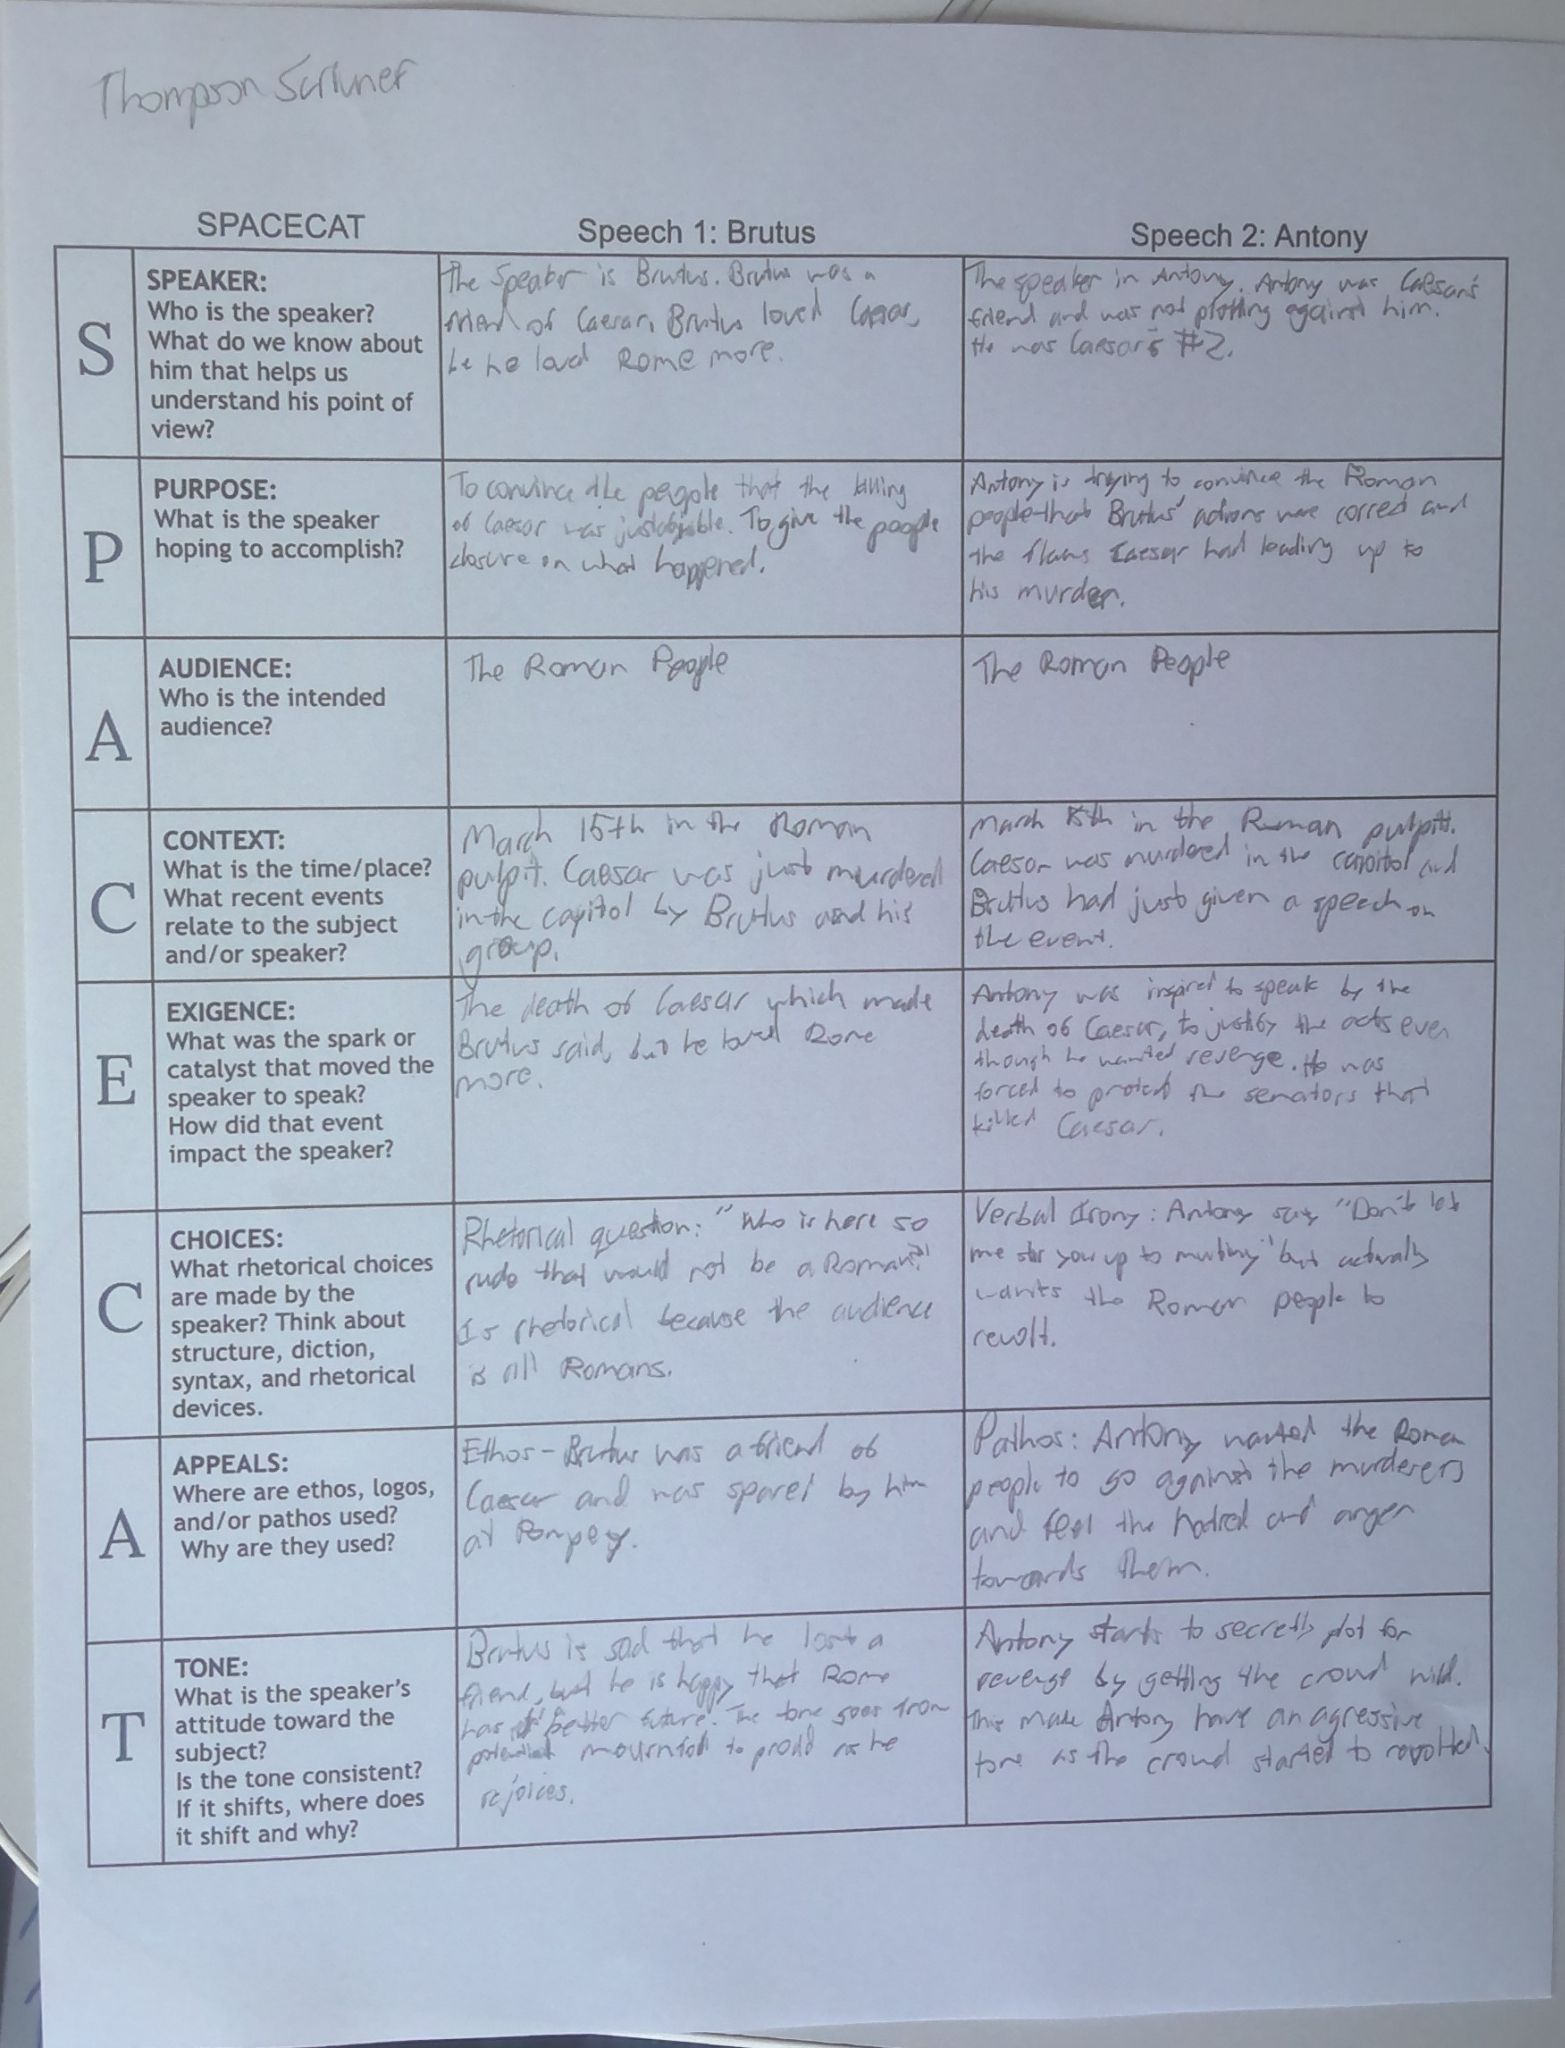 Thompson
SPACECAT
Speech 1: Brutus
Speech 2: Antony
S
SPEAKER:
Who is the speaker?
What do we know about
him that helps us
understand his point of
view?
The Speaker is Brutus. Brutus was a
friend of Caesar. Brutus loved Caesar,
he loved Rome more.
The speaker in Antony. Antony was Caesar's
friend and was not plotting against him.
He was Caesar's #2.
P
PURPOSE:
What is the speaker
hoping to accomplish?
To convince the people that the killing
of Caesar was To give the people
closure on what happened.
Antony is trying to convince the Roman
people that Brutus' actions were correct and
the flaws Caesar had leading up to
his murder.
A
AUDIENCE:
Who is the intended
audience?
The Roman People
The Roman People
C
CONTEXT:
What is the time/place?
What recent events
relate to the subject
and/or speaker?
March 15th in the Roman
pulpit. Caesar was just murdered
in the capitol by Brutus and his
group.
March 15th in the Roman pulpit.
Caesar was murdered in the capitol and
Brutus had just given a speech on
the event.
E
EXIGENCE:
What was the spark or
catalyst that moved the
speaker to speak?
How did that event
impact the speaker?
The death of Caesar which made
Brutus said, but he loved Rome
more.
Antony was inspired to speak by the
death of Caesar, to justify the acts even
though he wanted revenge. He was
forced to protect the senators that
killed Caesar.
C
CHOICES:
What rhetorical choices
are made by the
speaker? Think about
structure, diction,
syntax, and rhetorical
devices.
Rhetorical question: "Who is here so
rude that would not be a Roman?"
Is rhetorical because the audience
is all Romans.
Verbal Irony: Antony say "Don't let
me stir you up to mutiny" but actually
wants the Roman people to
revolt.
A
APPEALS:
Where are ethos, logos,
and/or pathos used?
Why are they used?
Ethos - Brutus was a friend of
Caesar and was spared by him
at Pompey.
Pathos: Antony wanted the Roman
people to go against the murderers
and feel the hatred and anger
towards them.
T
TONE:
What is the speaker's
attitude toward the
subject?
Is the tone consistent?
If it shifts, where does
it shift and why?
Brutus is sad that he lost a
friend, but he is happy that Rome
has better future. The tone goes from
to proud as he
rejoices.
Antony starts to secretly plot for
revenge by getting the crowd wild.
This make Antony have an agressive
tone as the crowd started to